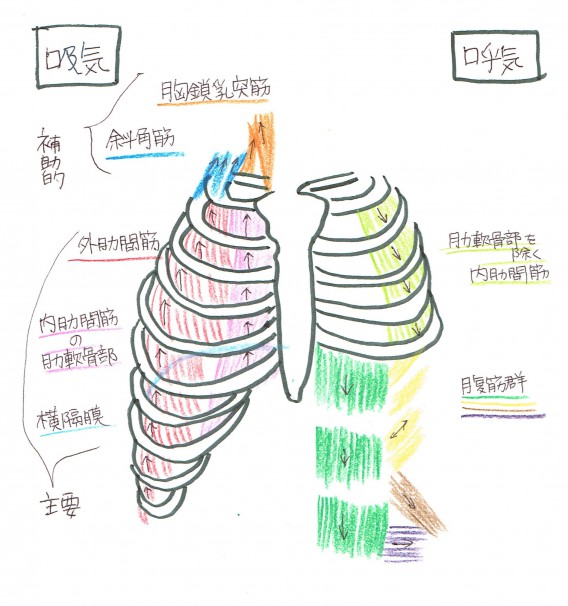 吸気
呼気
胸鎖乳突筋
補助的
斜角筋
外肋間筋
内肋間筋
の
肋軟骨部
横隔膜
主要
肋軟骨部を
除く
内肋間筋
腹筋群